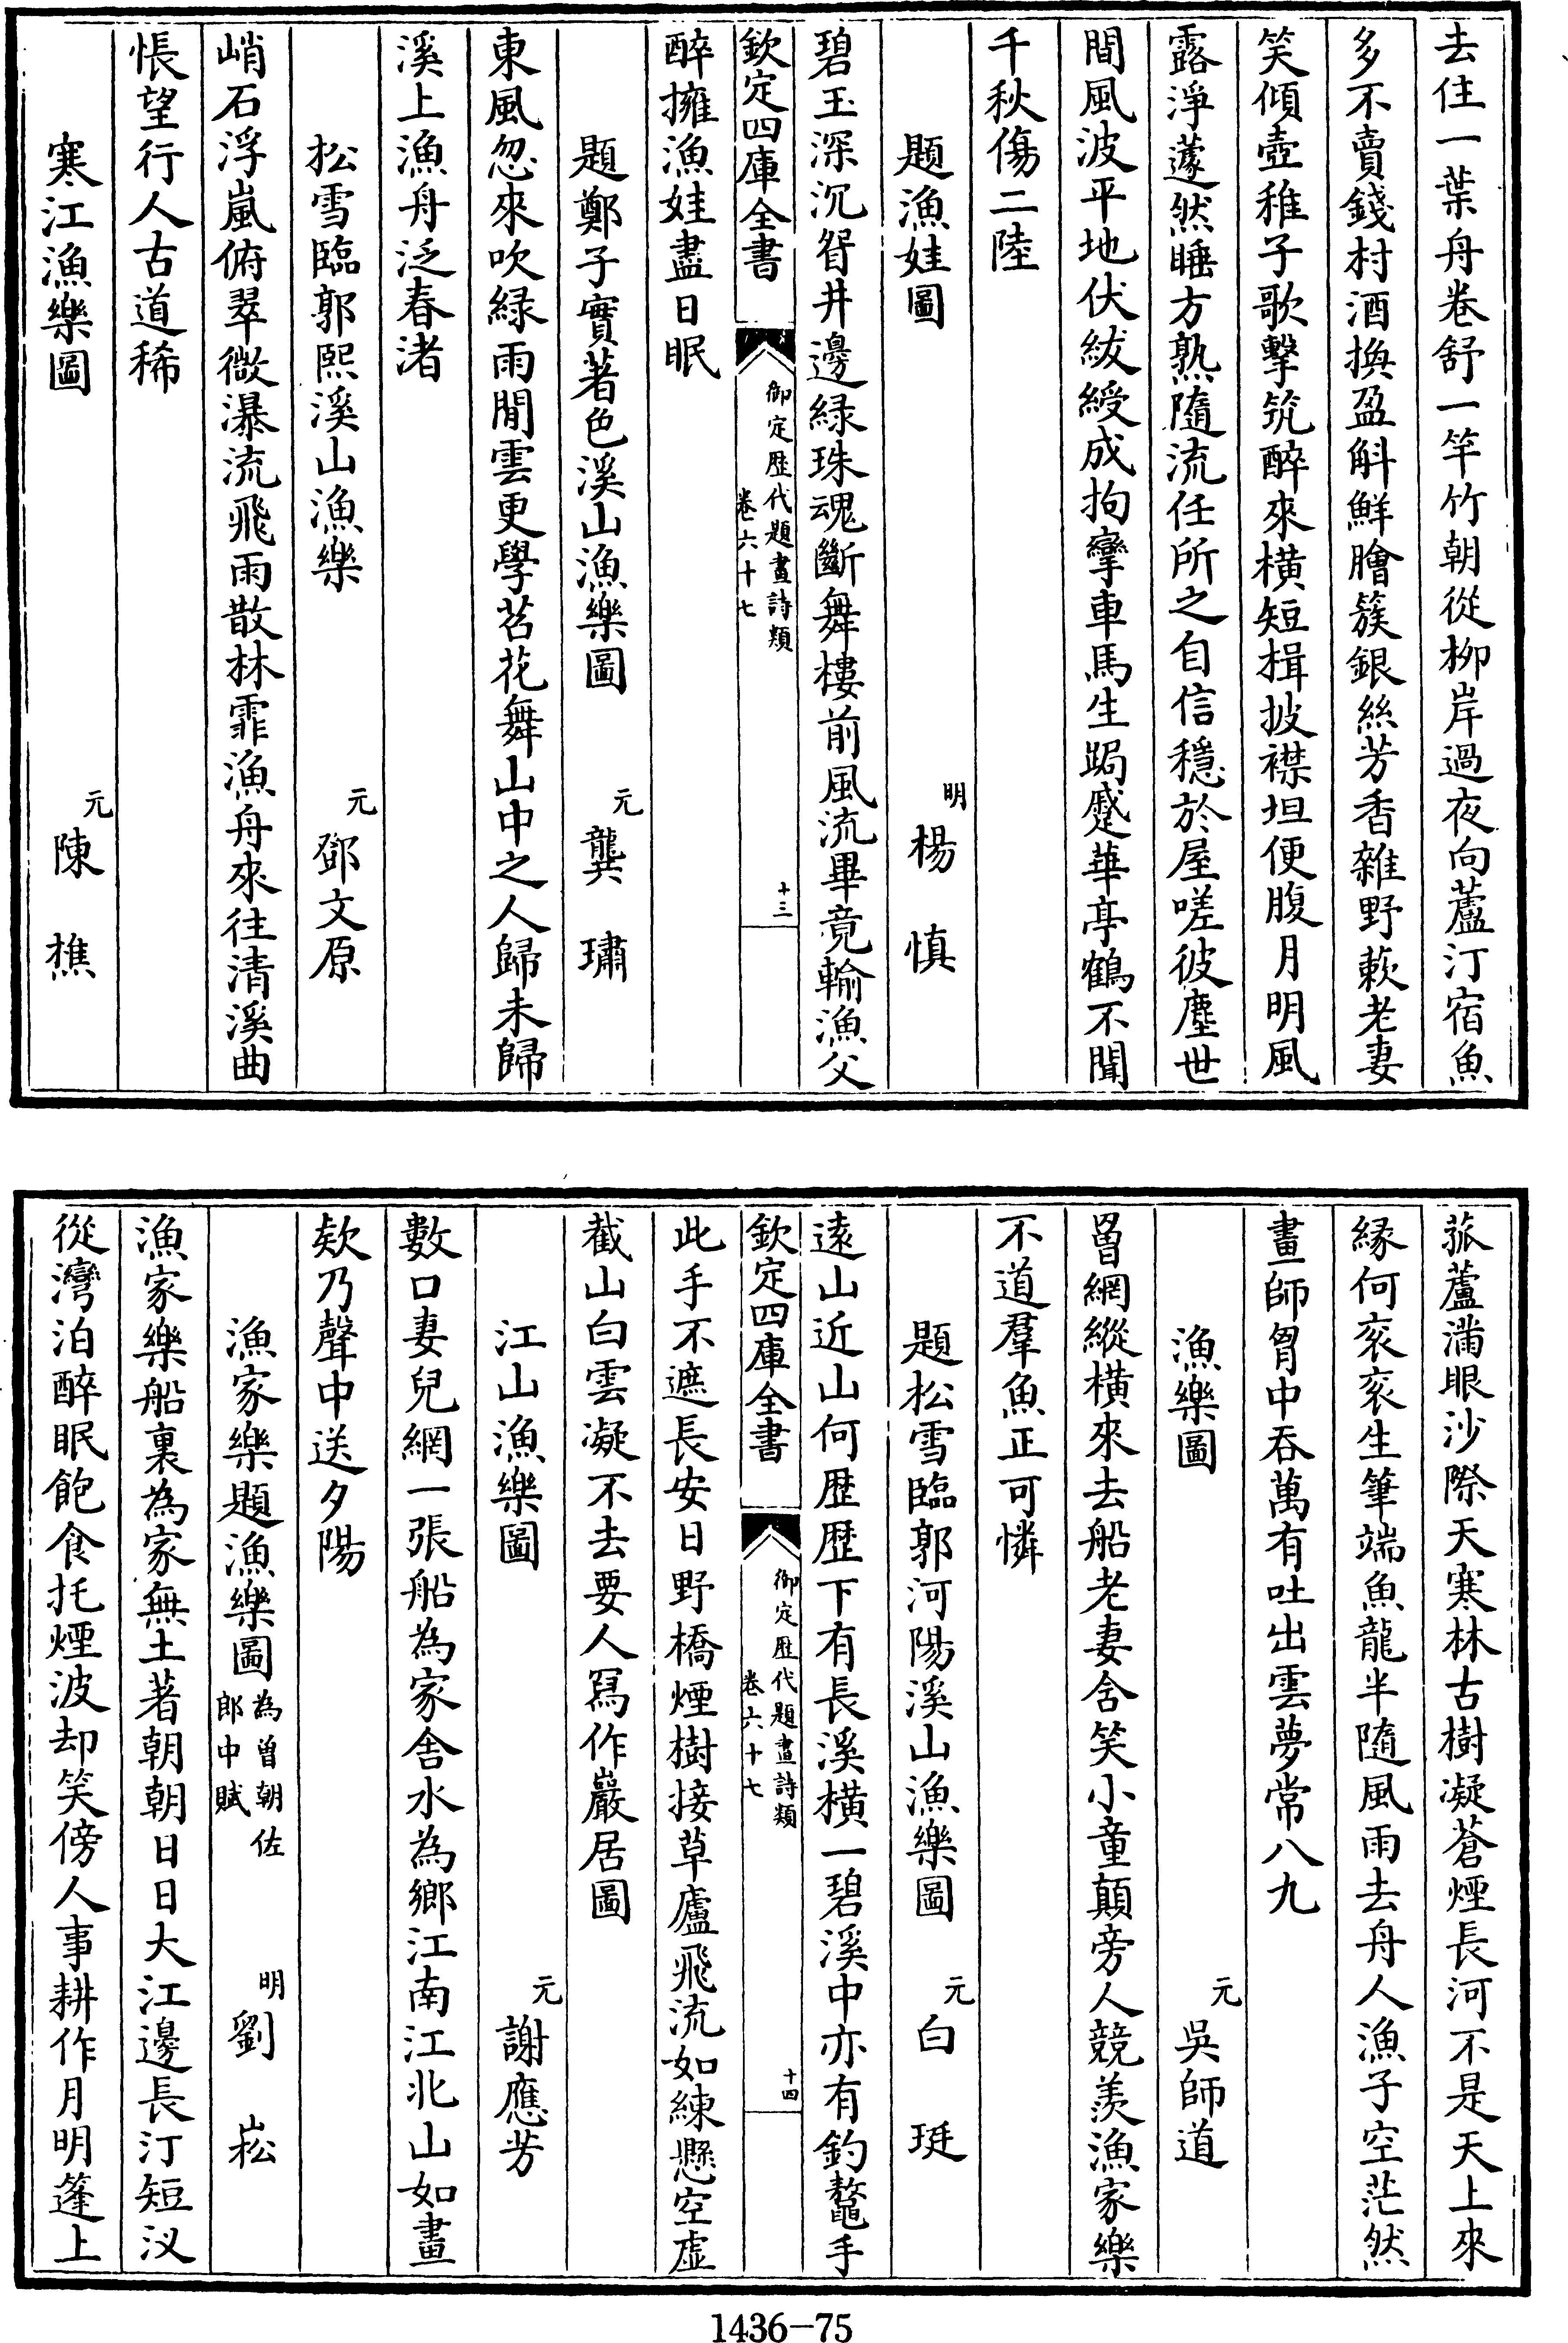 去住一葉舟卷舒一竿竹朝從柳岸過夜向蘆汀宿魚
多不賣錢村酒換盈斛鮮膾簇銀絲芳香雜野蔌老妻
笑傾壺稚子歌擊筑醉來橫短楫披襟坦便腹月明風
露淨蘧然睡方熟隨流任所之自信穩於屋嗟彼塵世
間風波平地伏紱綬成拘攣車馬生跼蹙華亭鶴不聞
千秋傷二陸
題漁娃圖 明 楊慎
碧玉深沉眢井邊緑珠魂斷舞樓前風流畢竟輸漁父
欽定四庫全書 御定歴代題畫詩類 卷六十七 十三
醉擁漁娃盡日眠
題鄭子實著色溪山漁樂圖 元 龔璛
東風忽來吹緑雨閒雲更學苕花舞山中之人歸未歸
溪上漁舟泛春渚
松雪臨郭熙溪山漁樂 元 鄧文原
峭石浮嵐俯翠微瀑流飛雨散林霏漁舟來往清溪曲
悵望行人古道稀
寒江漁樂圖 元 陳樵
菰蘆滿眼沙際天寒林古樹凝蒼煙長河不是天上來
緣何衮衮生筆端魚龍半隨風雨去舟人漁子空茫然
畫師胷中吞萬有吐出雲夢常八九
漁樂圖 元 吳師道
罾網縱橫來去船老妻含笑小童顛旁人競羨漁家樂
不道羣魚正可憐
題松雪臨郭河陽溪山漁樂圖 元 白珽
遠山近山何歴歴下有長溪橫一碧溪中亦有釣鼇手
欽定四庫全書 御定歴代題畫詩類 卷六十七 十四
此手不遮長安日野橋煙樹接草廬飛流如練懸空虛
截山白雲凝不去要人冩作巖居圖
江山漁樂圖 元 謝應芳
數口妻兒網一張船為家舍水為鄉江南江北山如畫
欸乃聲中送夕陽
漁家樂題漁樂圖 為曾朝佐郎中賦 明 劉崧
漁家樂船裏為家無土著朝朝日日大江邊長汀短汊
從灣泊醉眠飽食托煙波却笑傍人事耕作月明篷上
1436-75